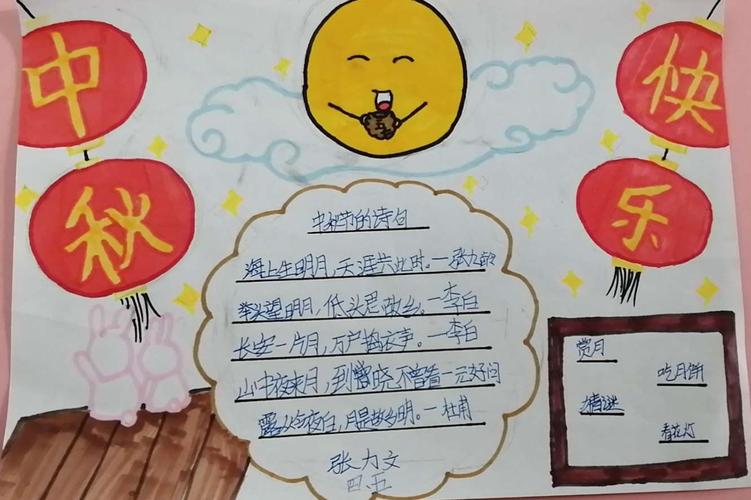 中秋
快乐
五
中秋节的诗句
海上生明月,天涯共此时。—张九龄
举头望明月,低头思故乡。—李白
长安一片月,万户捣衣声。—李白
山中夜来月,到晓不曾看—元好问
露从今夜白,月是故乡明。—杜甫
张力文
四.五
赏月
吃月饼
猜谜
看花灯